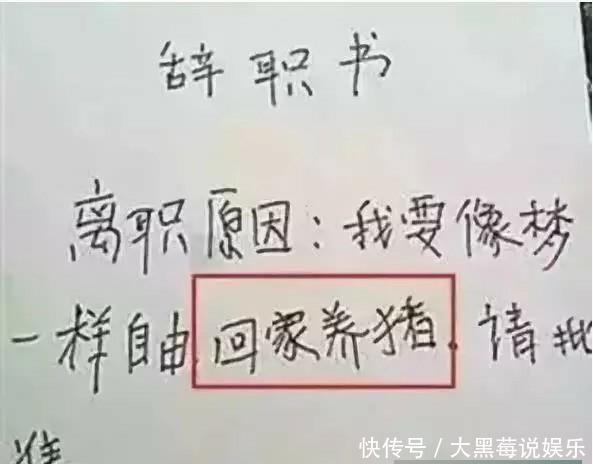 辞职书
离职原因:我要像梦
一样自由.回家养猪.请批
准
快传号/大黑莓说娱乐